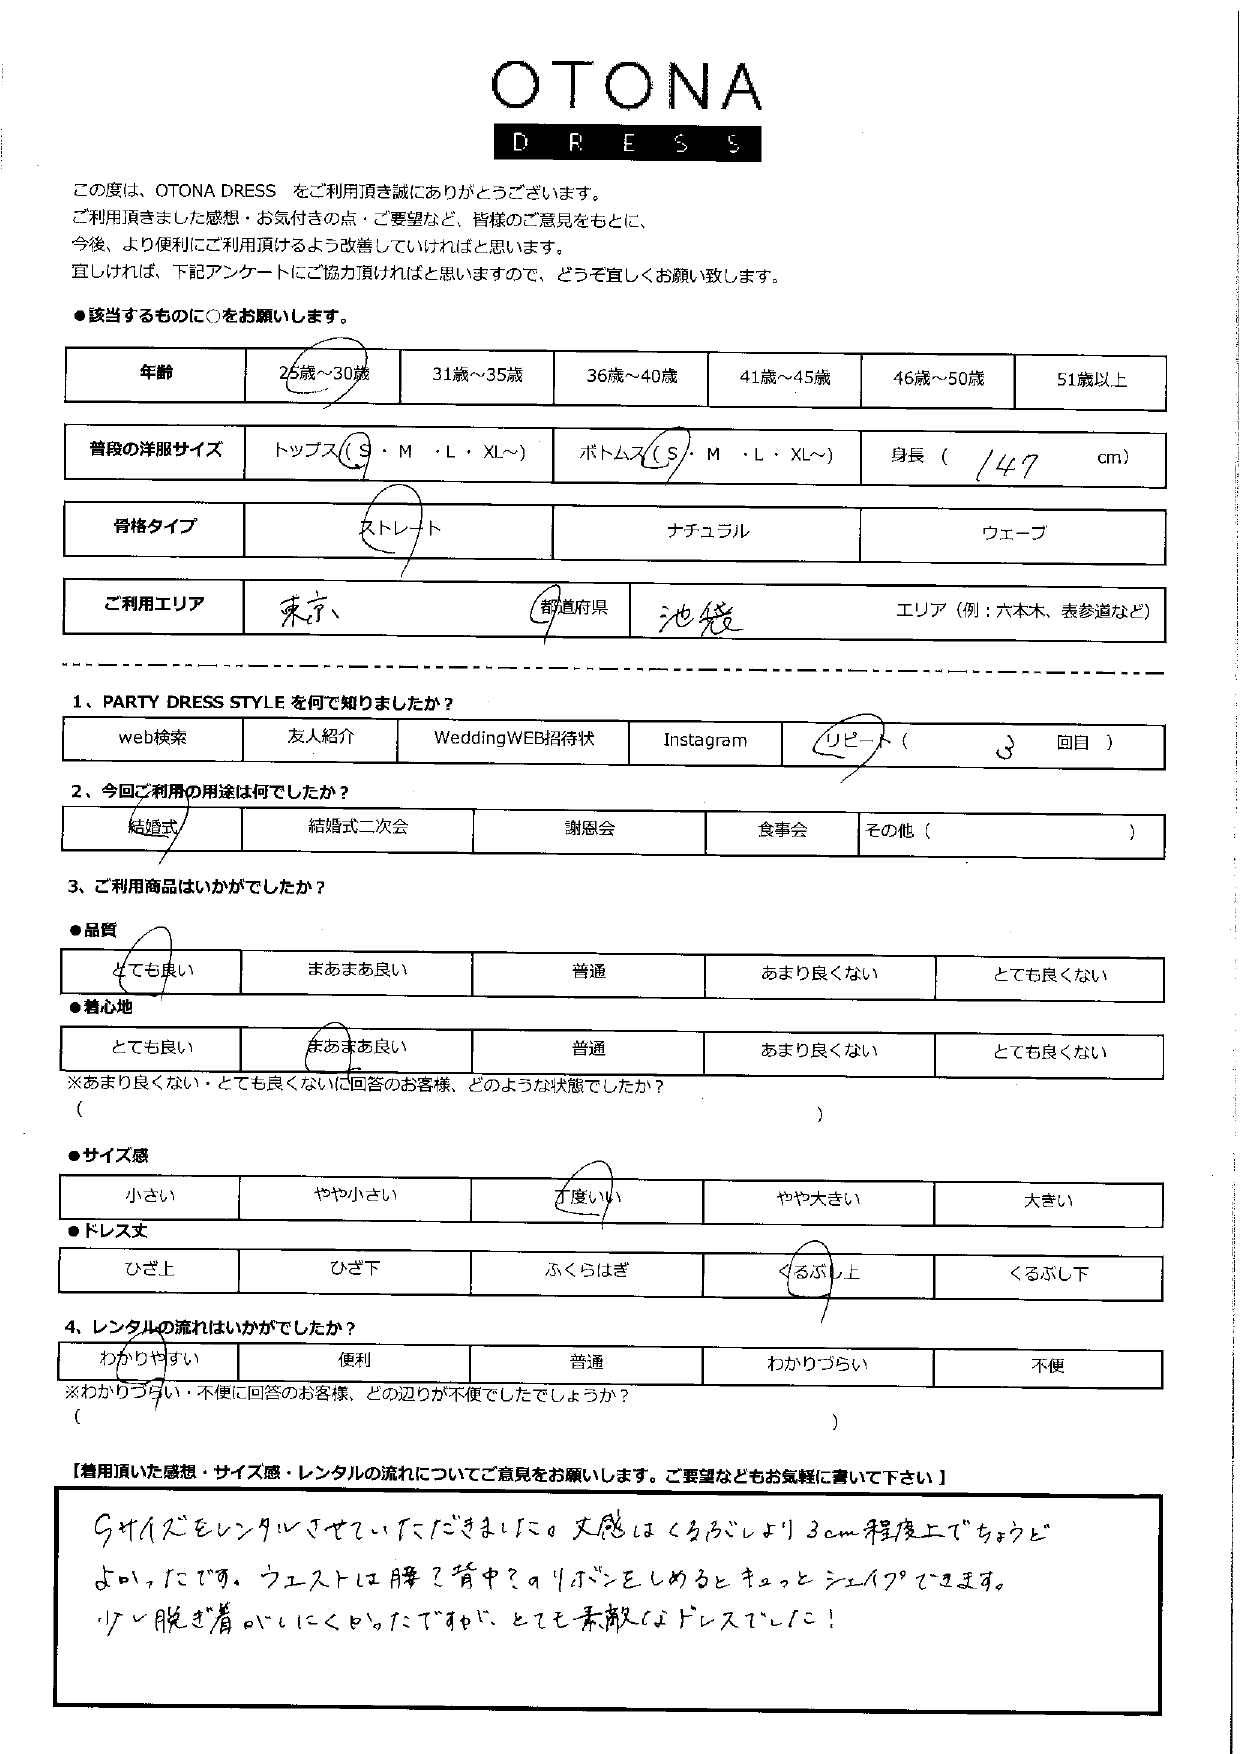 OTONA
DRESS
この度は、OTONA DRESS　をご利用頂き誠にありがとうございます。
ご利用頂きました感想・お気付きの点・ご要望など、皆様のご意見をもとに、
今後、より便利にご利用頂けるよう改善していければと思います。
宜しければ、下記アンケートにご協力頂ければと思いますので、どうぞ宜しくお願い致します。
●該当するものに○をお願いします。
年齢 25歳～30歳 31歳～35歳 36歳～40歳 41歳～45歳 46歳～50歳 51歳以上
普段の洋服サイズ トップス( S ・ M ・L ・ XL～) ボトムス( S ・ M ・L ・ XL～) 身長 ( 147 cm)
骨格タイプ ストレート ナチュラル ウェーブ
ご利用エリア 東京 都道府県 池袋 エリア（例：六本木、表参道など）
1、PARTY DRESS STYLE を何で知りましたか？
web検索 友人紹介 WeddingWEB招待状 Instagram リピート ( 3 回目 )
2、今回ご利用の用途は何でしたか？
結婚式 結婚式二次会 謝恩会 食事会 その他（ ）
3、ご利用商品はいかがでしたか？
●品質
とても良い まあまあ良い 普通 あまり良くない とても良くない
●着心地
とても良い まあまあ良い 普通 あまり良くない とても良くない
※あまり良くない・とても良くないに回答のお客様、どのような状態でしたか？
( )
●サイズ感
小さい やや小さい 丁度いい やや大きい 大きい
●ドレス丈
ひざ上 ひざ下 ふくらはぎ くるぶし上 くるぶし下
4、レンタルの流れはいかがでしたか？
わかりやすい 便利 普通 わかりづらい 不便
※わかりづらい・不便に回答のお客様、どの辺りが不便でしたでしょうか？
( )
【着用頂いた感想・サイズ感・レンタルの流れについてご意見をお願いします。ご要望などもお気軽に書いて下さい 】
Sサイズをレンタルさせていただきました。丈感はくるぶしより3cm程度上でちょうど
よかったです。ウエストは腰？背中？のリボンをしめるとキュっとシェイプできます。
少し脱ぎ着がしにくかったですが、とても素敵なドレスでした！